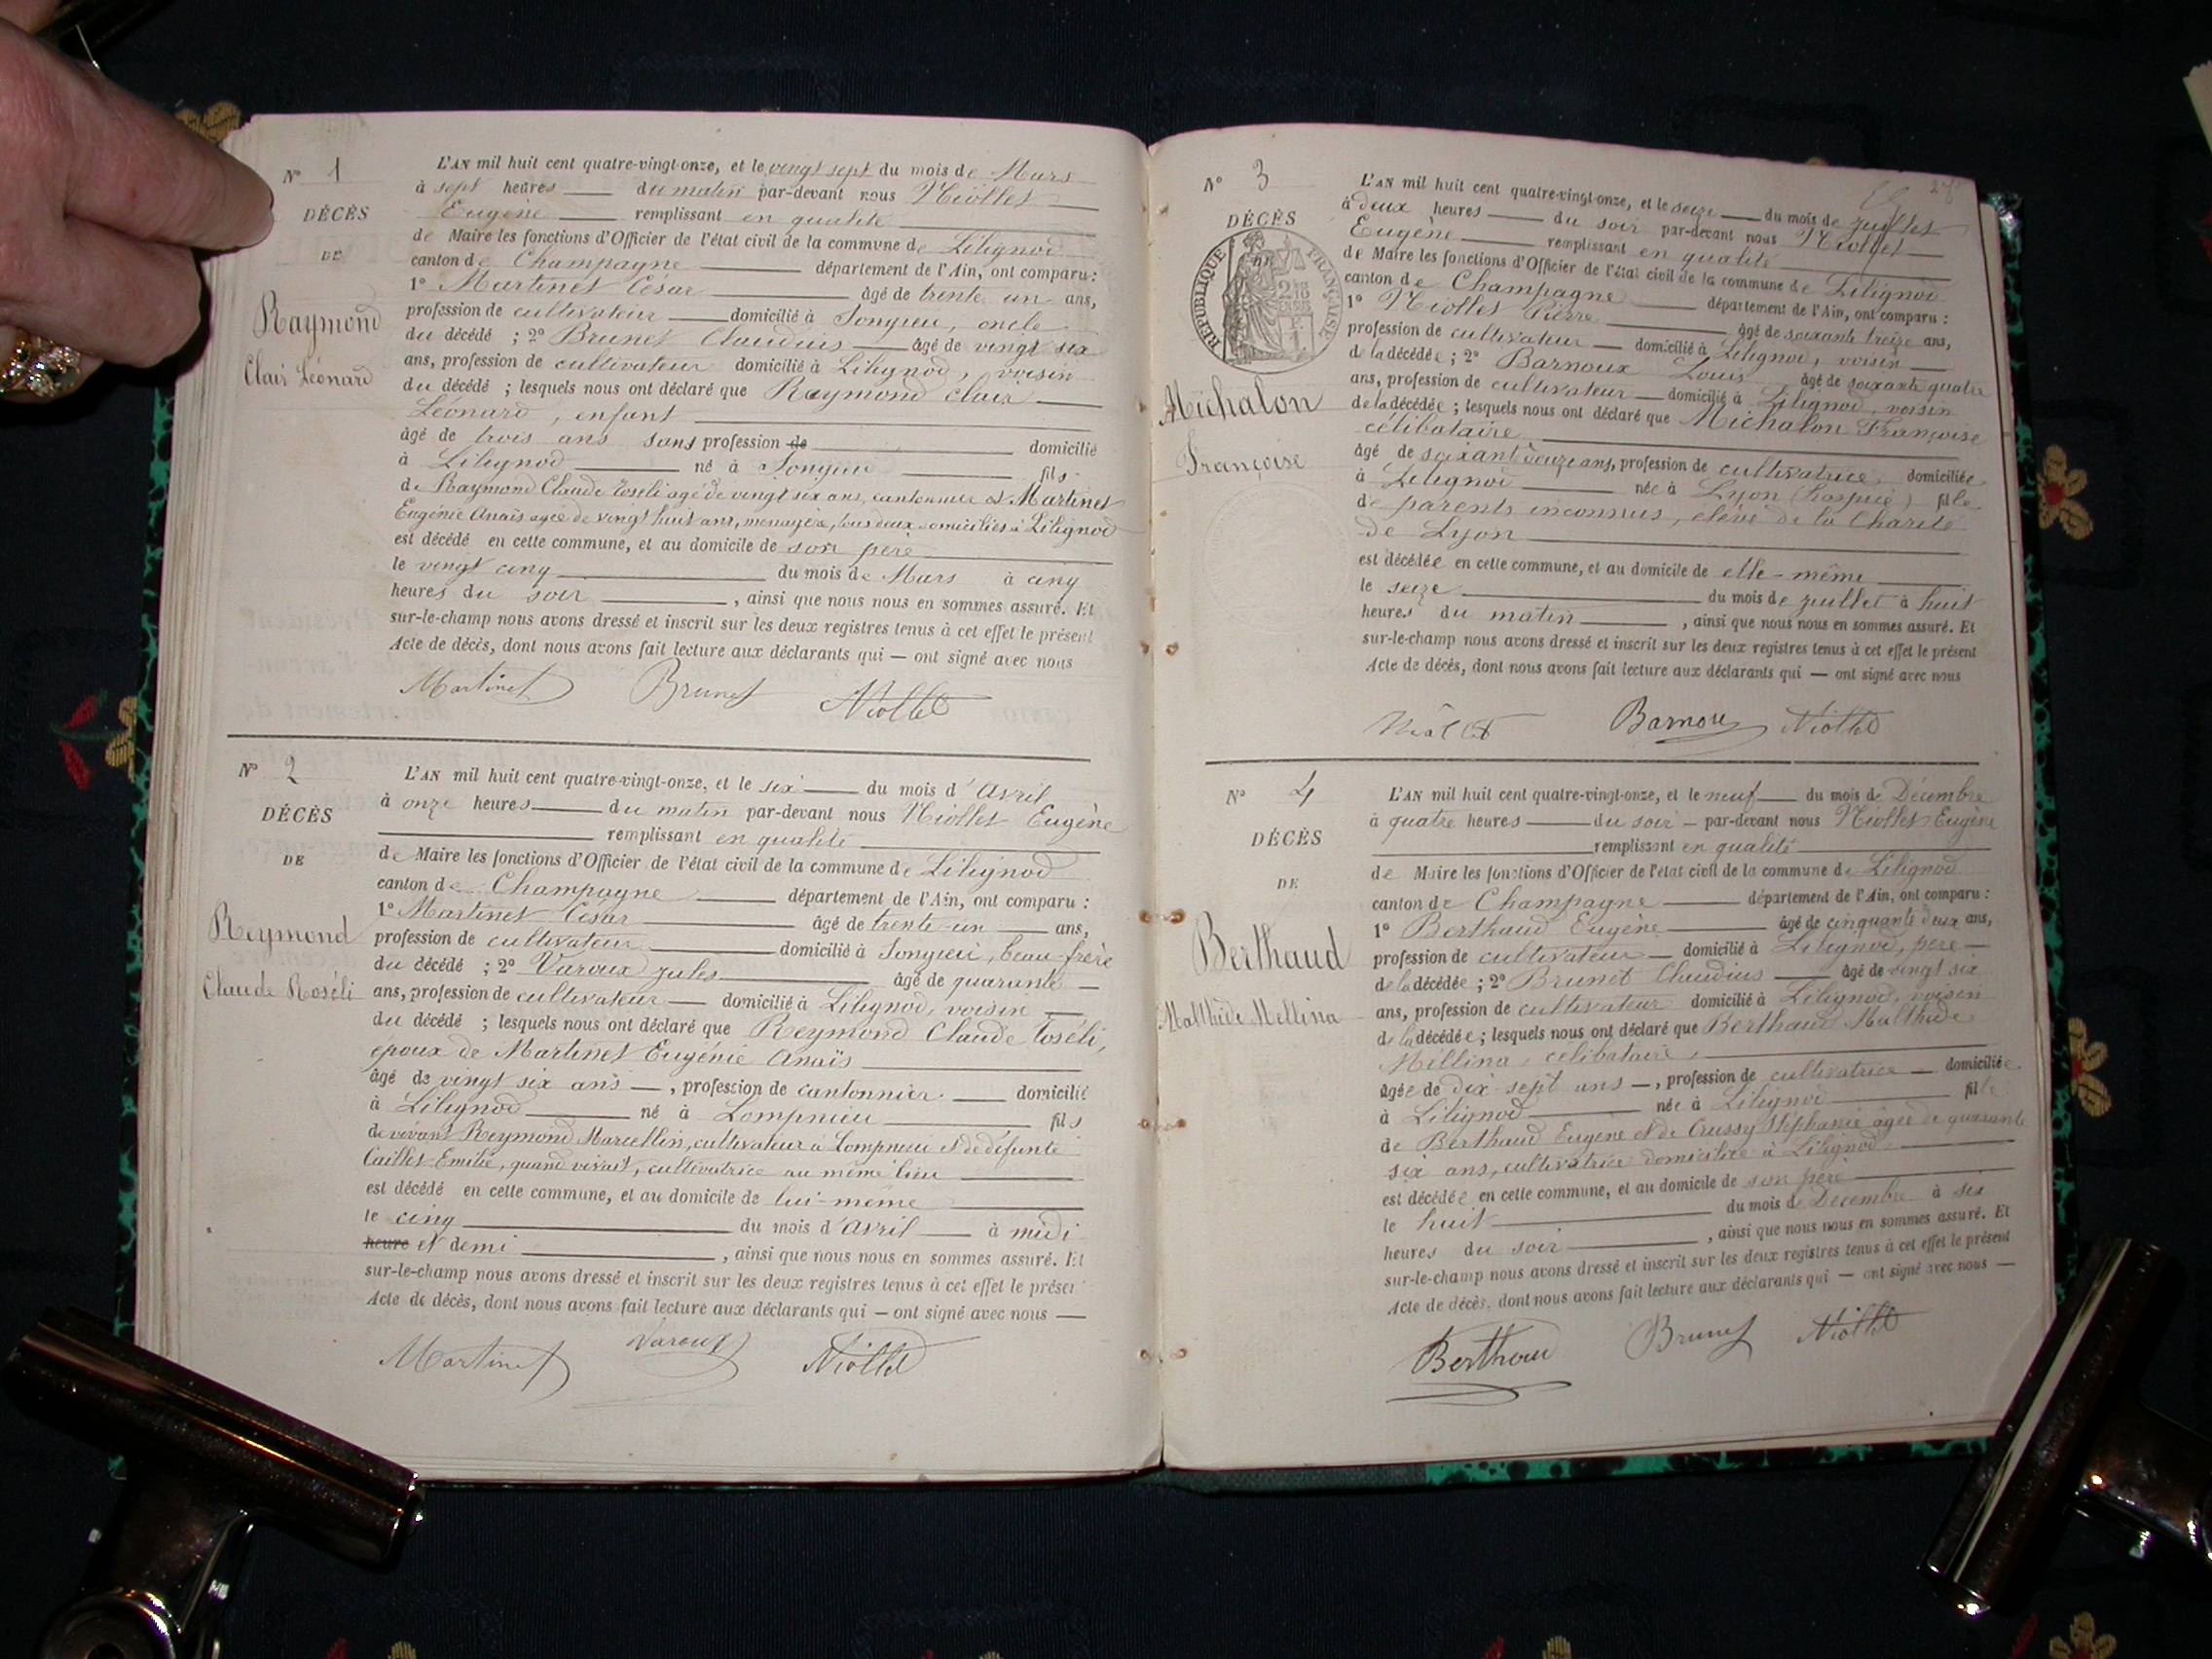 N° 1
DÉCÈS
DE
Raymond
Clair Léonard
L'AN mil huit cent quatre-vingt-onze, et le vingt sept du mois de Mars
à sept heures du matin par-devant nous Niollet
Eugène remplissant en qualité
de Maire les fonctions d'Officier de l'état civil de la commune de Lilignod
canton de Champagne département de l'Ain, ont comparu:
1° Martinet César âgé de trente un ans,
profession de cultivateur domicilié à Songieu, oncle
du décédé ; 2° Brunet Claudius âgé de vingt six
ans, profession de cultivateur domicilié à Lilignod, voisin
du décédé ; lesquels nous ont déclaré que Raymond Clair
Léonard, enfant
âgé de trois ans sans profession de domicilié
à Lilignod né à Songieu fils
de Raymond Claude Roséli agé de vingt six ans, cantonnier et Martinet
Eugénie Anaïs agée de vingt huit ans, menagère, tous deux domiciliés à Lilignod
est décédé en cette commune, et au domicile de son père
le vingt cinq du mois de Mars à cinq
heures du soir , ainsi que nous nous en sommes assuré. Et
sur-le-champ nous avons dressé et inscrit sur les deux registres tenus à cet effet le présent
Acte de décès, dont nous avons fait lecture aux déclarants qui — ont signé avec nous
Martinet Brunet Niollet
N° 2
DÉCÈS
DE
Reymond
Claude Roséli
L'AN mil huit cent quatre-vingt-onze, et le six du mois d'Avril
à onze heures du matin par-devant nous Niollet Eugène
remplissant en qualité
de Maire les fonctions d'Officier de l'état civil de la commune de Lilignod
canton de Champagne département de l'Ain, ont comparu :
1° Martinet César âgé de trente-un ans,
profession de cultivateur domicilié à Songieu, beau-frère
du décédé ; 2° Varoux Jules âgé de quarante
ans, profession de cultivateur domicilié à Lilignod, voisin
du décédé ; lesquels nous ont déclaré que Reymond Claude Roséli,
epoux de Martinet Eugénie Anaïs
âgé de vingt six ans , profession de cantonnier domicilié
à Lilignod né à Lompnieu fils
de vivant Reymond Marcellin, cultivateur à Lompnieu et de défunte
Caillet Emilie, quand vivait, cultivatrice au même lieu
est décédé en cette commune, et au domicile de lui-même
le cinq du mois d'Avril à midi
heure et demi , ainsi que nous nous en sommes assuré. Et
sur-le-champ nous avons dressé et inscrit sur les deux registres tenus à cet effet le présent
Acte de décès, dont nous avons fait lecture aux déclarants qui — ont signé avec nous —
Martinet Varoux Niollet
N° 3
DÉCÈS
RÉPUBLIQUE FRANÇAISE
Michalon
Françoise
L'AN mil huit cent quatre-vingt-onze, et le seize du mois de Juillet
à deux heures du soir par-devant nous Niollet
Eugène remplissant en qualité
de Maire les fonctions d'Officier de l'état civil de la commune de Lilignod
canton de Champagne département de l'Ain, ont comparu :
1° Niollet Pierre âgé de soixante treize ans,
profession de cultivateur domicilié à Lilignod, voisin
de la décédée ; 2° Barnoux Louis âgé de soixante quatre
ans, profession de cultivateur domicilié à Lilignod, voisin
de la décédée ; lesquels nous ont déclaré que Michalon Françoise
célibataire
âgé de soixant douze ans, profession de cultivatrice domiciliée
à Lilignod née à Lyon (hospice) fille
de parents inconnus, elévé de la Charité
de Lyon
est décédée en cette commune, et au domicile de elle-même
le seize du mois de Juillet à huit
heures du matin , ainsi que nous nous en sommes assuré. Et
sur-le-champ nous avons dressé et inscrit sur les deux registres tenus à cet effet le présent
Acte de décès, dont nous avons fait lecture aux déclarants qui — ont signé avec nous
Niollet Barnoux Niollet
N° 4
DÉCÈS
DE
Berthaud
Malthide Mellina
L'AN mil huit cent quatre-vingt-onze, et le neuf du mois de Décembre
à quatre heures du soir par-devant nous Niollet Eugène
remplissant en qualité
de Maire les fonctions d'Officier de l'état civil de la commune de Lilignod
canton de Champagne département de l'Ain, ont comparu :
1° Berthaud Eugène âgé de cinquante deux ans,
profession de cultivateur domicilié à Lilignod, père
de la décédée ; 2° Brunet Claudius âgé de vingt six
ans, profession de cultivateur domicilié à Lilignod, voisin
de la décédée ; lesquels nous ont déclaré que Berthaud Malthide
Mellina, célibataire,
âgée de dix sept ans , profession de cultivatrice domiciliée
à Lilignod née à Lilignod fille
de Berthaud Eugène et de Crussy Stéphanie âgée de quarante
six ans, cultivatrice domiciliée à Lilignod
est décédée en cette commune, et au domicile de son père
le huit du mois de Décembre à six
heures du soir , ainsi que nous nous en sommes assuré. Et
sur-le-champ nous avons dressé et inscrit sur les deux registres tenus à cet effet le présent
Acte de décès, dont nous avons fait lecture aux déclarants qui — ont signé avec nous —
Berthaud Brunet Niollet